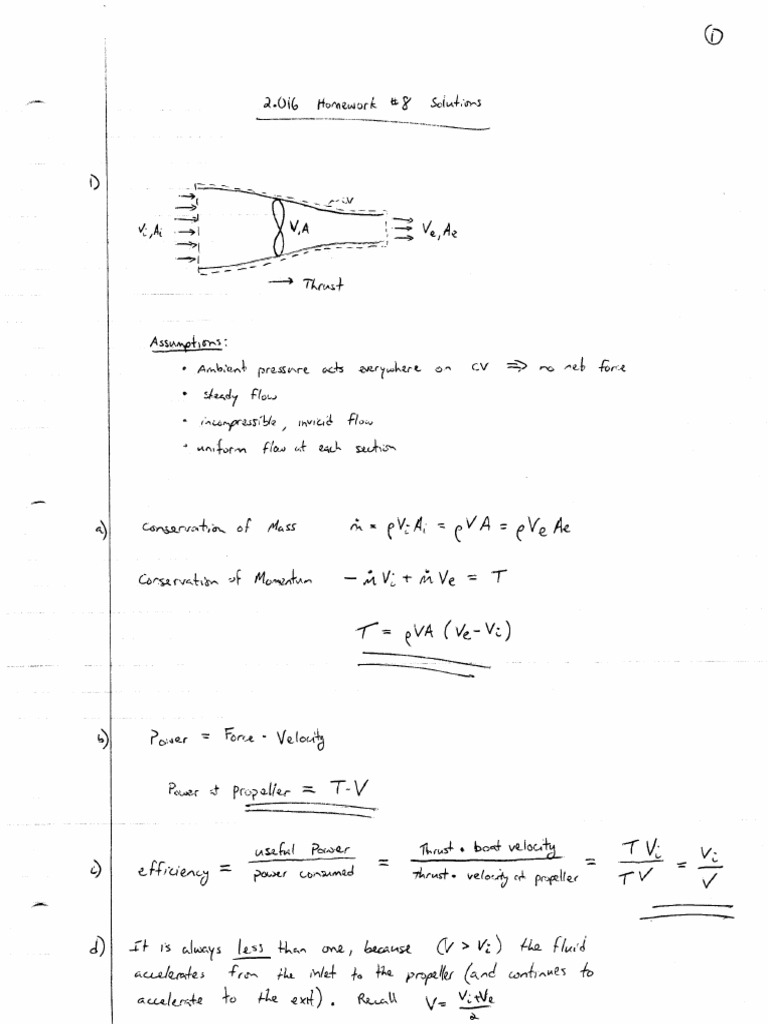 ①
2.016 Homework #8 Solutions
1)
CV
Vi, Ai
V, A
Ve, Ae
→ Thrust
Assumptions:
• Ambient pressure acts everywhere on CV ⇒ no net force
• steady flow
• incompressible, invicid flow
• uniform flow at each section
a) Conservation of Mass ṁ = ρViAi = ρVA = ρVeAe
Conservation of Momentum −ṁVi + ṁVe = T
T = ρVA (Ve−Vi)
b) Power = Force · Velocity
Power at propeller = T·V
c) efficiency = useful Power / power consumed = Thrust · boat velocity / thrust · velocity at propeller = TVi / TV = Vi / V
d) It is always less than one, because (V > Vi) the fluid
accelerates from the inlet to the propeller (and continues to
accelerate to the exit). Recall V = Vi+Ve / 2